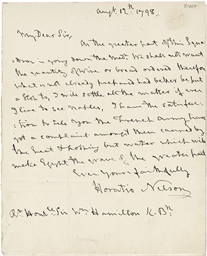 Augst 12th 1798.
My Dear Sir,
As the greater part of this Squad
=ron is going down the Medn. We shall not want
the quantity of Wine or bread ordered therefore
what is not already prepared had better be put
a Stop to, I will settle all the matter if ever
I live to see Naples, I have the satisfac-
tion to tell you the French Army have
got a complaint amongst them caused by
the heat & nothing but water which will
make Egypt the grave of the greater part
Ever Yours faithfully
Horatio Nelson
Rt. Honle. Sir Wm. Hamilton K.B.